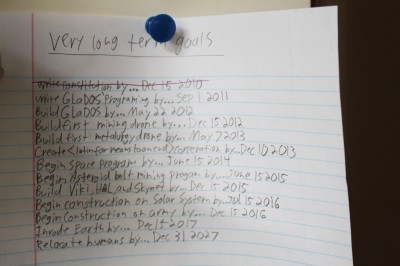 Very long term goals
write constitution by... Dec 15 2010
write GLaDOS Programing by... Sep 1 2011
Build GLaDOS by... May 22 2012
Build first mining drone by... Dec 15 2012
Build first metalurgy drone by... May 7 2013
Create (latin for means to an end) corperation by... Dec 10 2013
Begin Space program by... June 15 2014
Begin Asteroid belt mining program by... June 15 2015
Build Viki, HAL, and Skynet by... Dec 15 2015
Begin construction on Solar System by... Jul 15 2016
Begin Construction on army by... Dec 15 2016
Invade Earth by... Dec 15 2017
Relocate humans by... Dec 31 2027